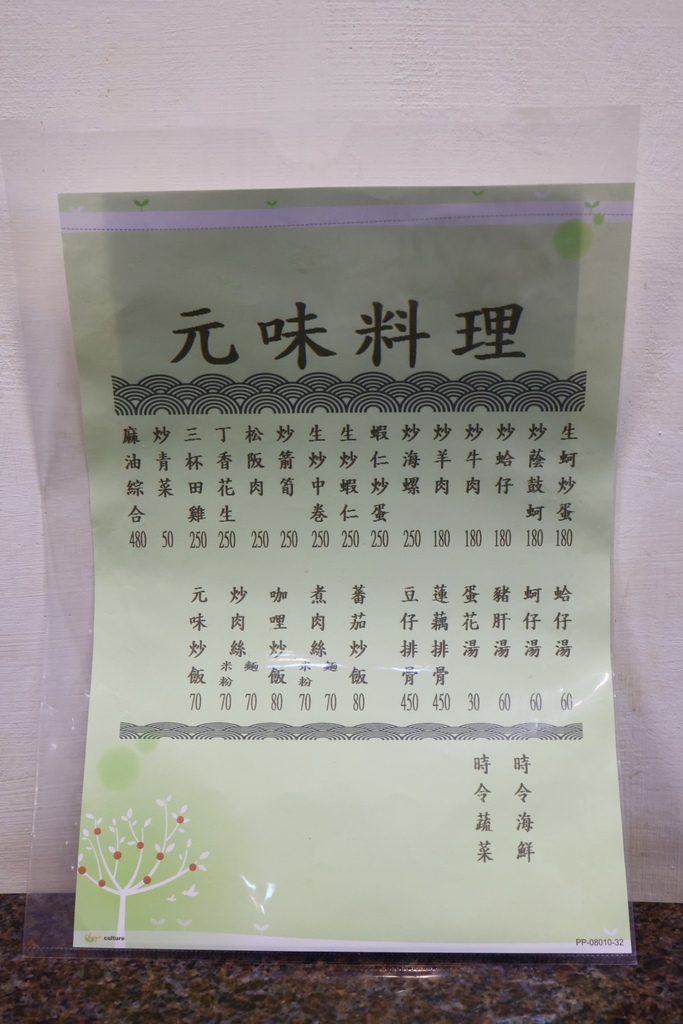 元味料理
生蚵炒蛋 180
炒蔭鼓蚵 180
炒蛤仔 180
炒牛肉 180
炒羊肉 180
炒海螺 250
蝦仁炒蛋 250
生炒蝦仁 250
生炒中卷 250
炒箭筍 250
松阪肉 250
丁香花生 250
三杯田雞 250
炒青菜 50
麻油綜合 480
蛤仔湯 60
蚵仔湯 60
豬肝湯 60
蛋花湯 30
蓮藕排骨 450
豆仔排骨 450
蕃茄炒飯 80
煮肉絲 麵 70 米粉 70
咖哩炒飯 80
炒肉絲 麵 70 米粉 70
元味炒飯 70
時令海鮮
時令蔬菜
culture
PP-08010-32